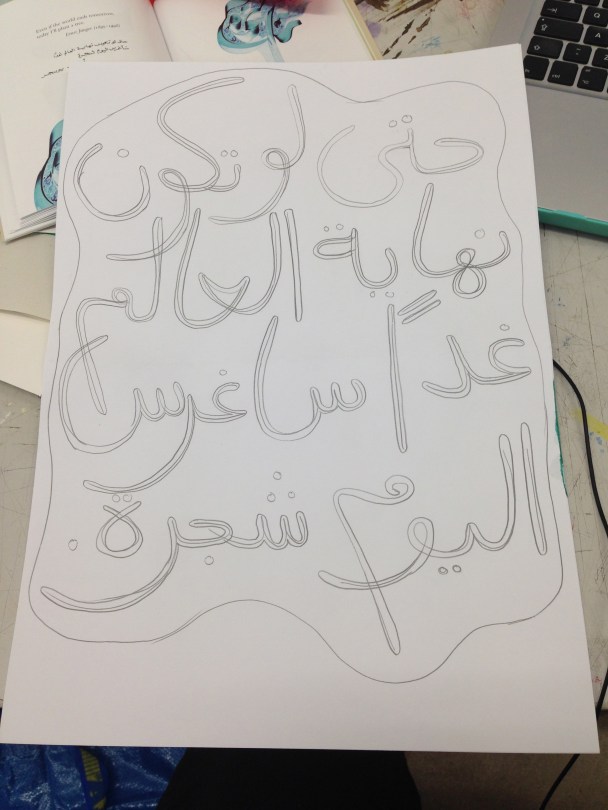 حتى لو تكون
نهاية العالم
غداً ساغرس
اليوم شجرة.